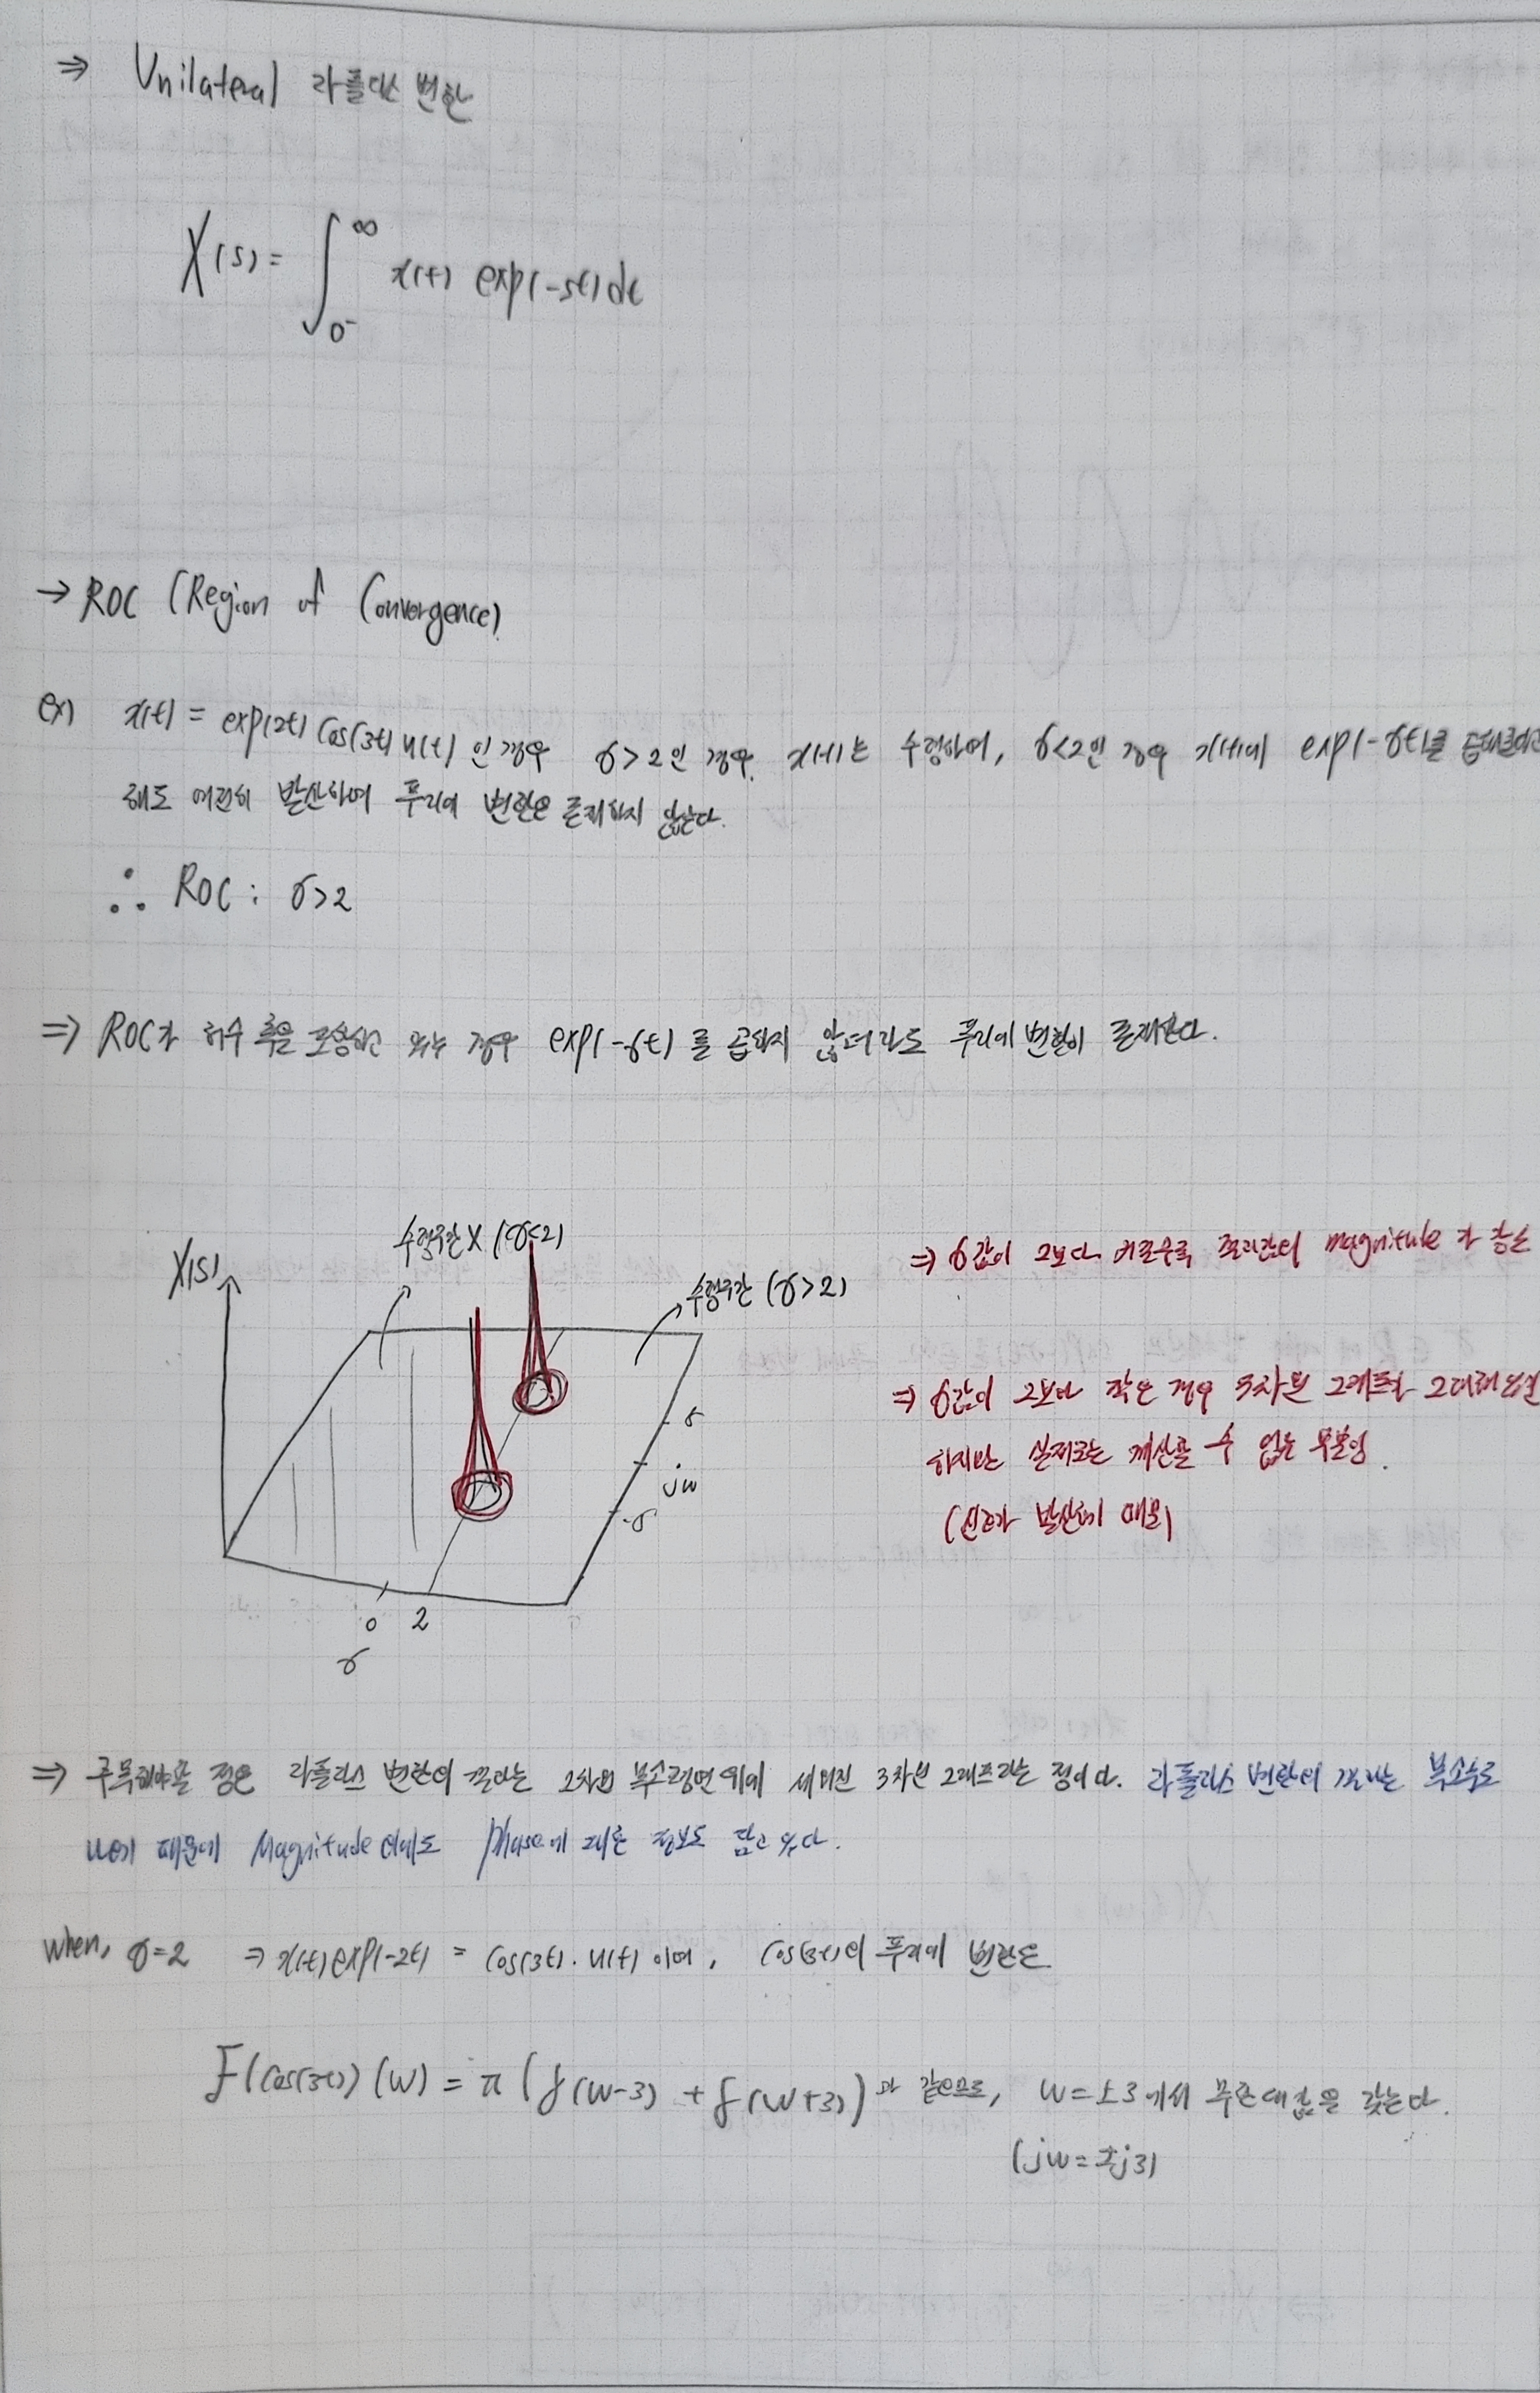 ⇒ Unilateral 라플라스 변환
X(s) = ∫₀-^∞ x(t) exp(-st)dt
→ ROC (Region of Convergence)
ex) x(t) = exp(2t) cos(3t) u(t) 인 경우 σ>2인 경우. x(t)는 수렴하며, σ<2인 경우 x(t)에 exp(-σt)를
해도 여전히 발산하여 푸리에 변환은 존재하지 않는다.
∴ ROC : σ>2
⇒ ROC가 허수 축을 포함하고 있는 경우 exp(-σt)를 곱하지 않더라도 푸리에 변환이 존재한다.
수렴구간 X (σ<2)
X(s)
수렴구간 (σ>2)
⇒ σ값이 2보다 커질수록 magnitude가
σ
⇒ σ값이 2보다 작은 경우 3차원 그래프가 그려져있
jw
하지만 실제로는 계산할 수 없는 부분임.
-σ
(신호가 발산하기 때문)
0 2
σ
⇒ 주목해야할 점은 라플라스 변환의 결과는 2차원 복소평면 위에 세워진 3차원 그래프라는 점이다. 라플라스 변환의 결과는 복소수로
나오기 때문에 Magnitude 이외에도 phase에 대한 정보도 담고 있다.
when, σ=2 ⇒ x(t)exp(-2t) = cos(3t)·u(t) 이며, cos(3t)의 푸리에 변환은
F(cos(3t))(w) = π(δ(w-3) + δ(w+3))과 같으므로, w=±3에서 무한대 값을 갖는다.
(jw=±j3)